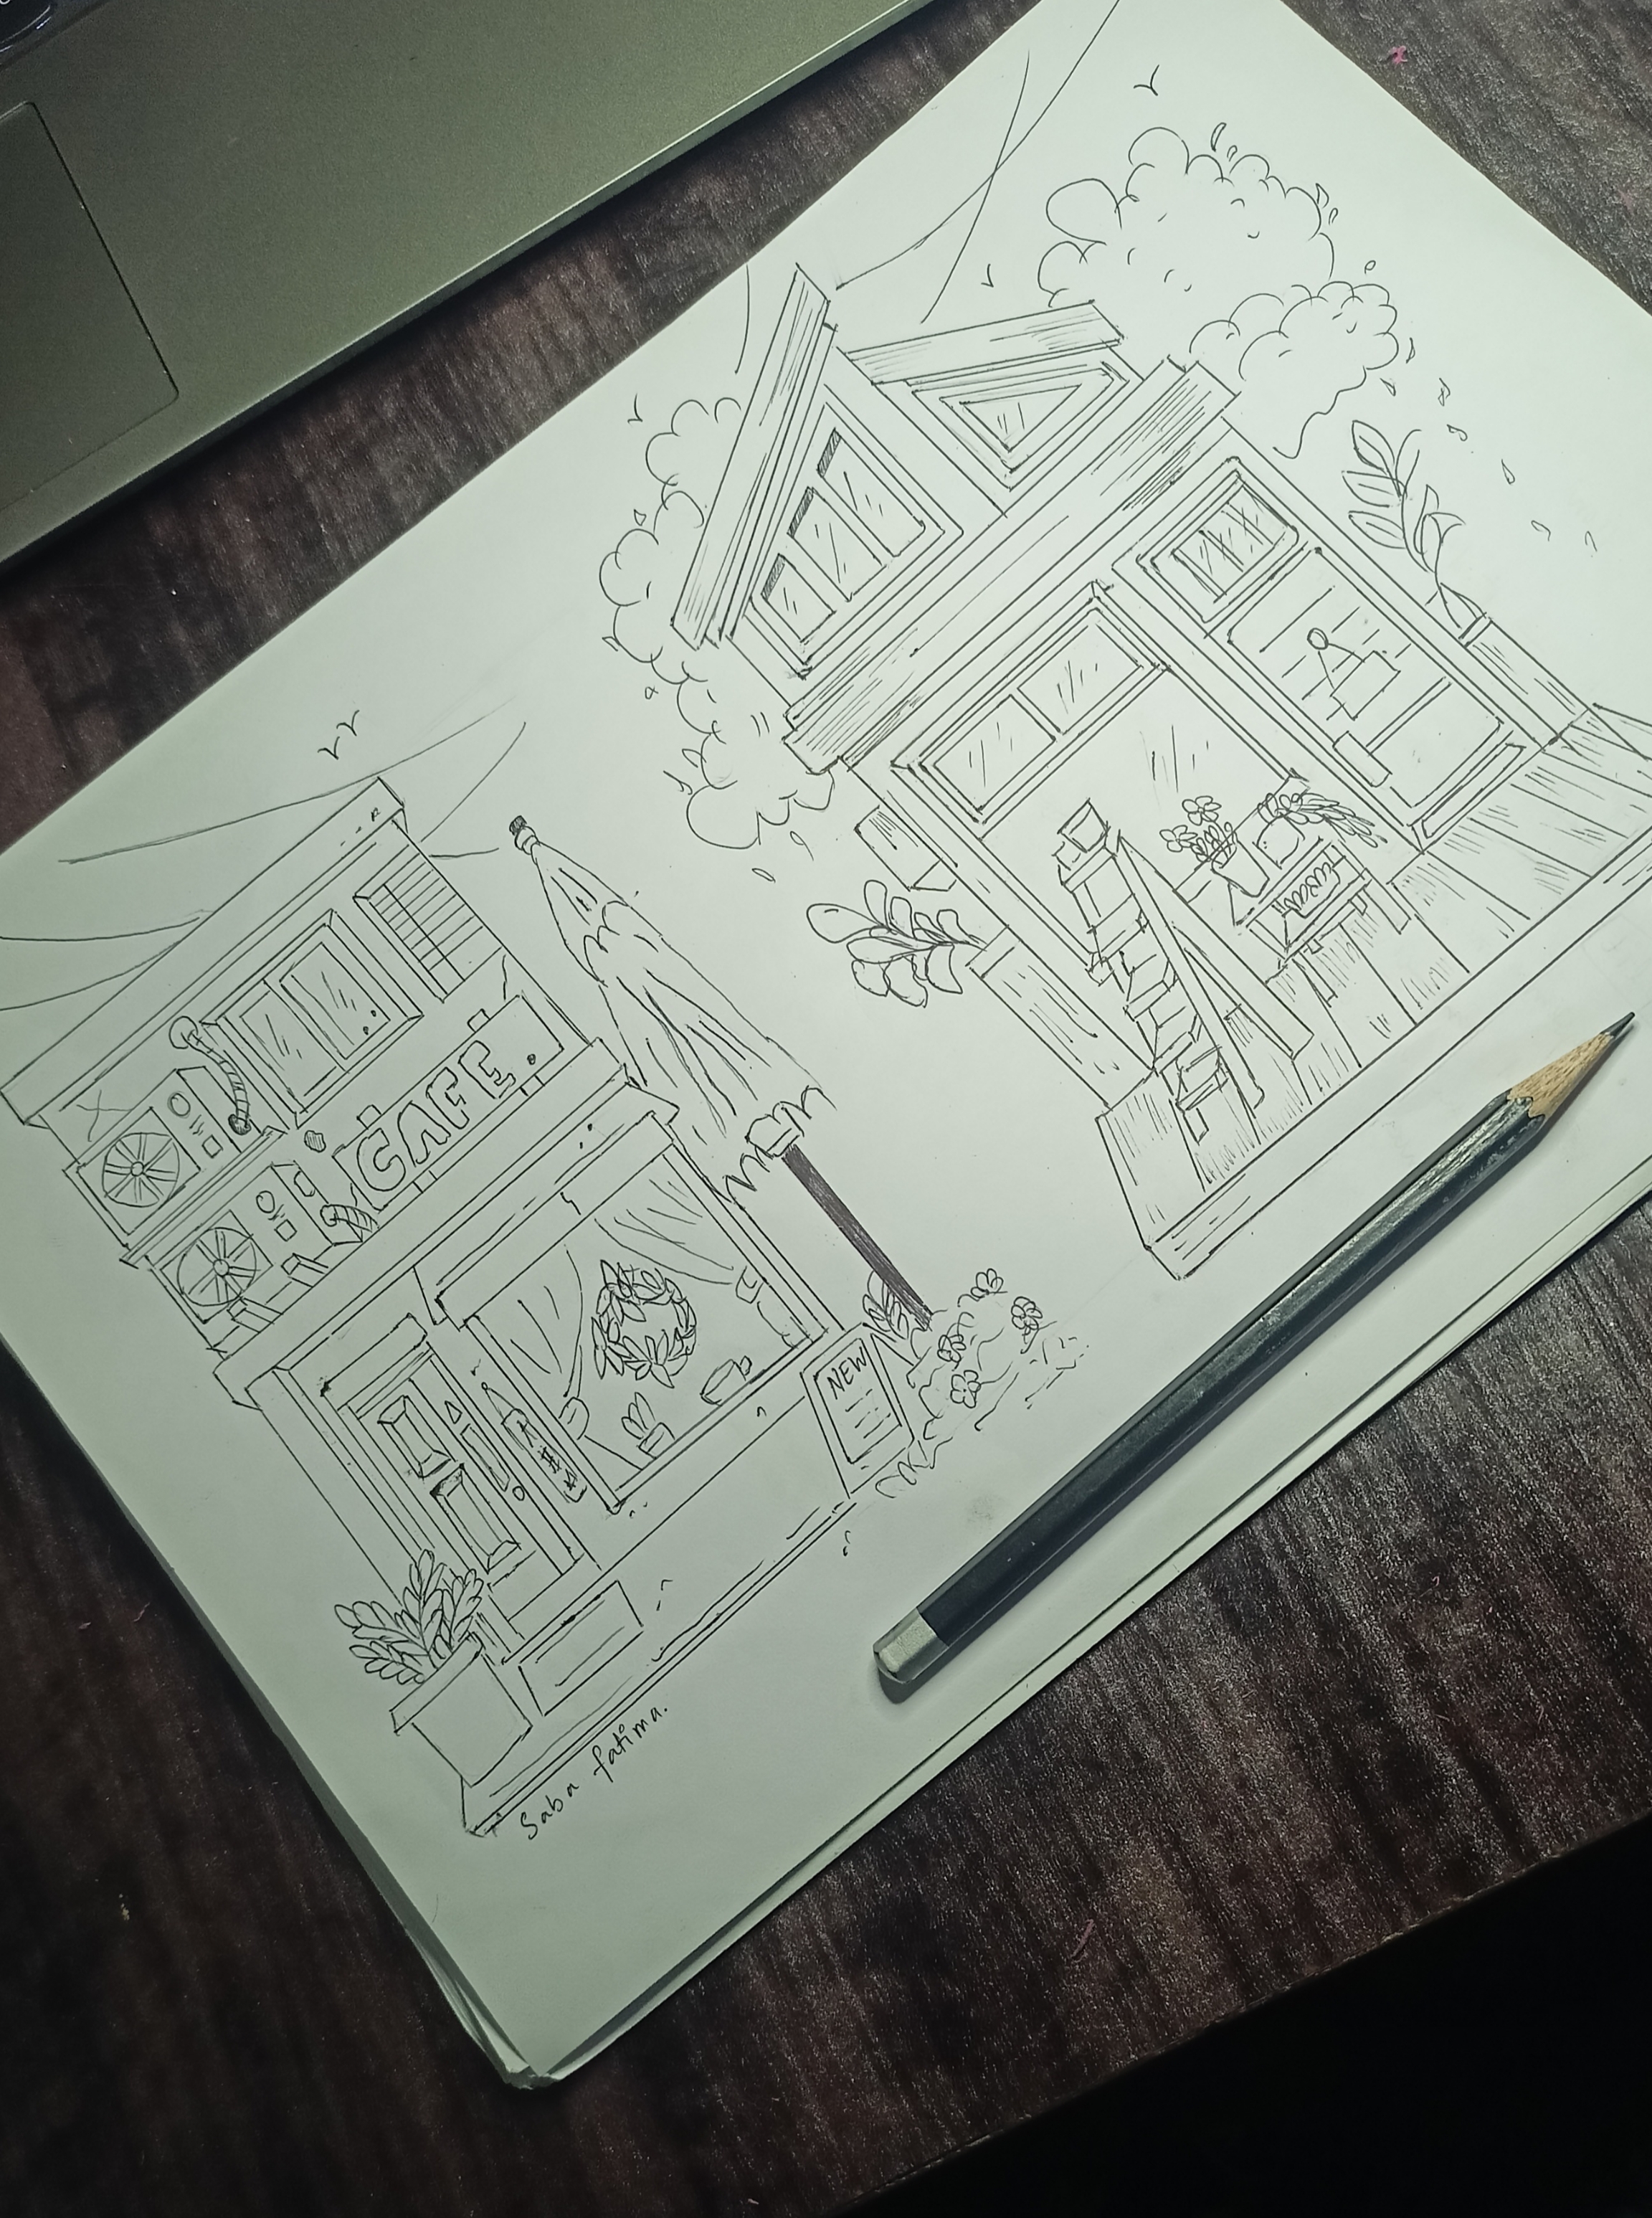 CAFE.
NEW
Saba fatima.